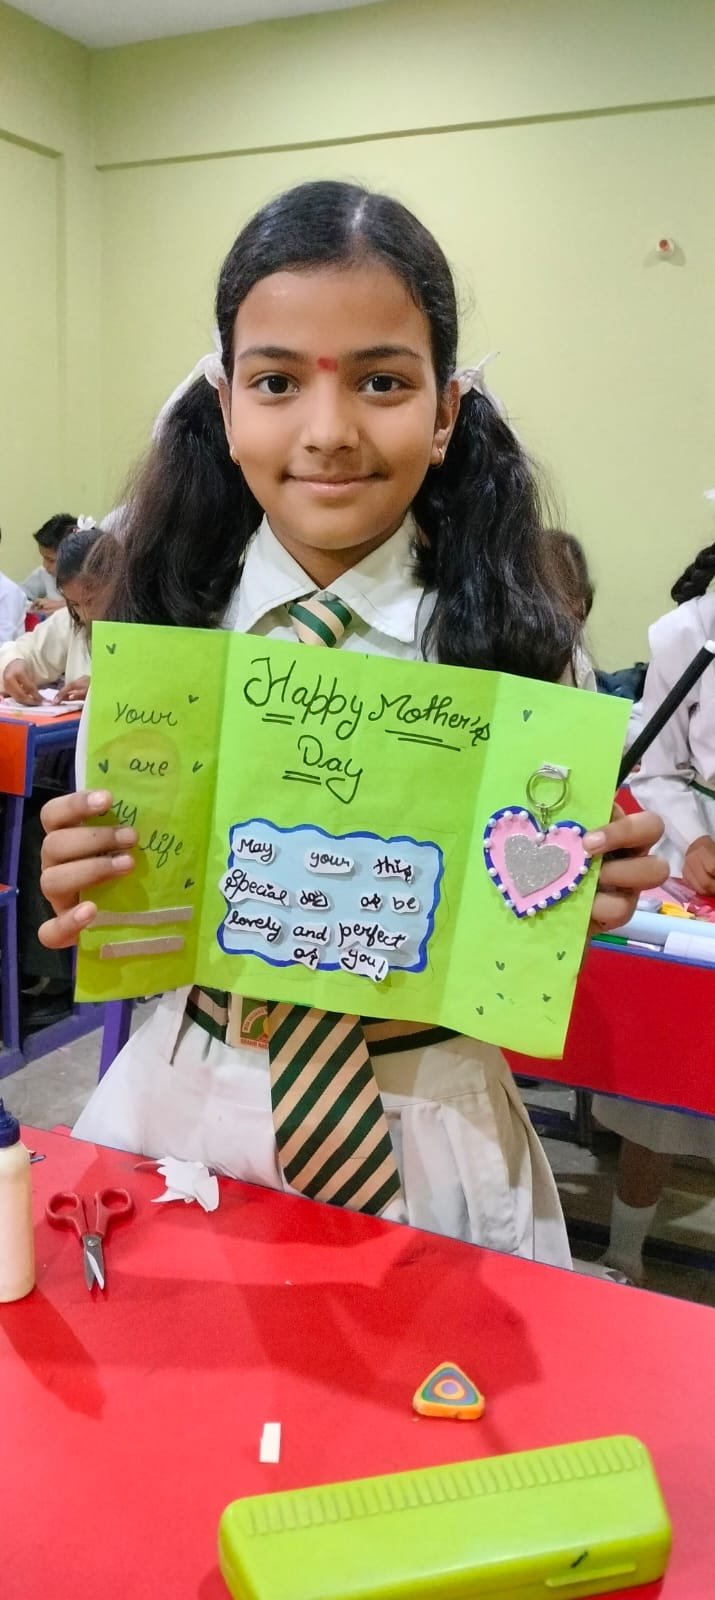 Your
are
My
life
Happy Mother's
Day
May your this
Special day as be
lovely and perfect
as you!